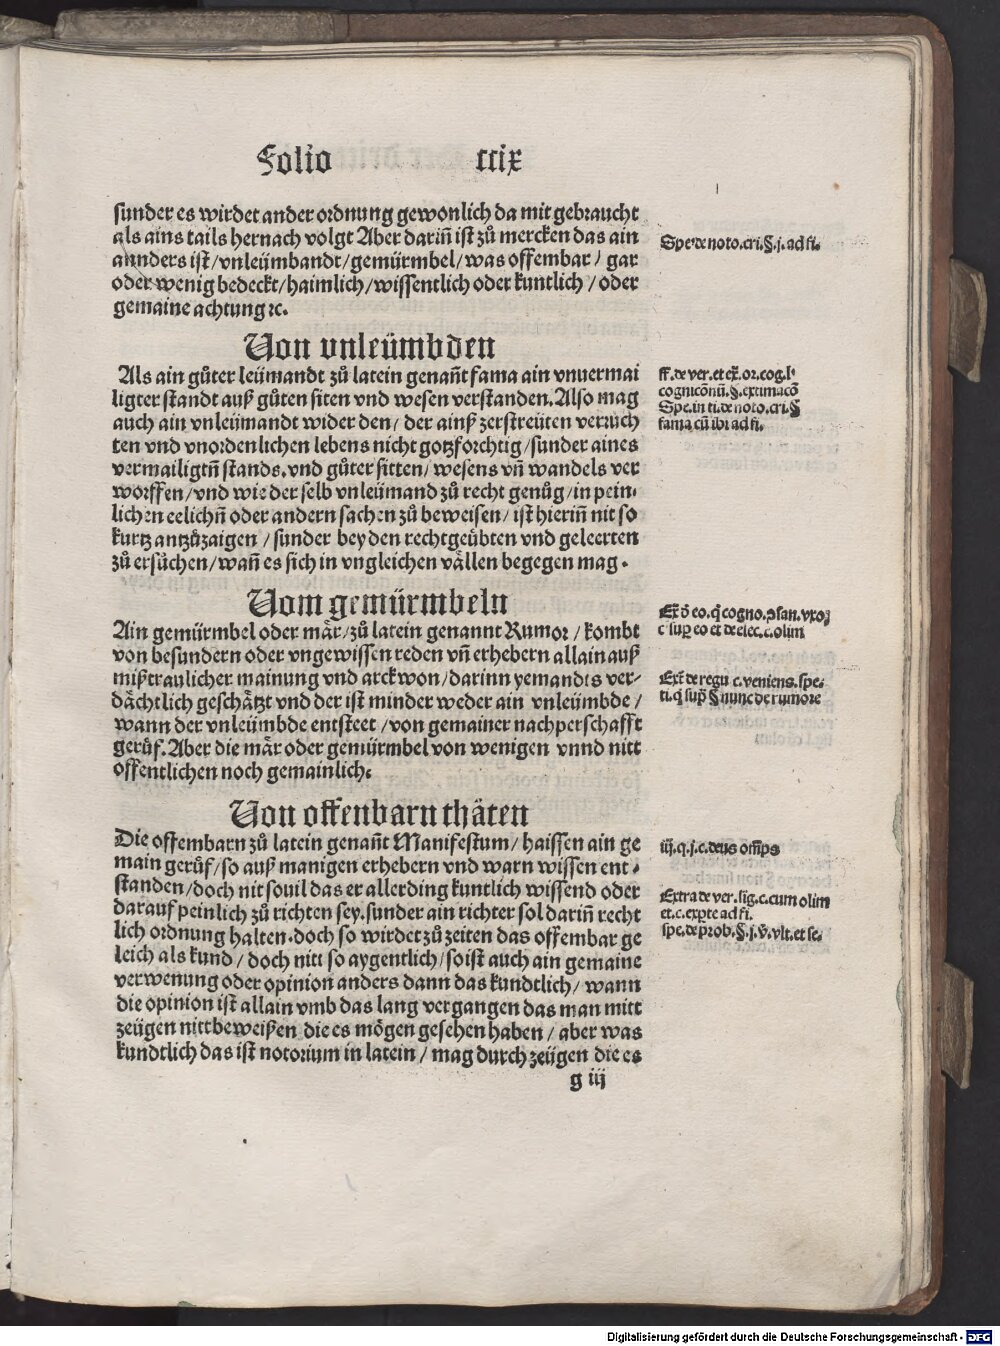 Folio ccix
sunder es wirdet ander ordnung gewonlich da mit gebraucht
als ains tails hernach volgt Aber dariñ ist zů mercken das ain
annders ist / vnleümbandt / gemürmbel / was offembar / gar
oder wenig bedeckt / haimlich / wissentlich oder kuntlich / oder
gemaine achtung ꝛc.
Spe. de noto. cri. §. j. ad fi.
Von vnleümbden
Als ain gůter leümandt zů latein genañt fama ain vnuermai
ligter standt auß gůten siten vnd wesen verstanden. Also mag
auch ain vnleümandt wider den / der ainß zerstreüten verruch
ten vnd vnordenlichen lebens nicht gotzforchtig / sunder aines
vermailigtñ stands. vnd gůter sitten / wesens vñ wandels ver
worffen / vnd wie der selb vnleümand zů recht genůg / in pein-
lichen eelichñ oder andern sachen zů beweisen / ist hieriñ nit so
kurtz antzůzaigen / sunder bey den rechtgeübten vnd geleerten
zů ersůchen / wañ es sich in vngleichen vällen begegen mag.
ff. de ver. et ex̄. or. cog. l.
cognicōnū. §. extimacō
Spe. in ti. de noto. cri. §
fama cū ibi ad fi.
Vom gemürmbeln
Ain gemürmbel oder mär / zů latein genannt Rumor / kombt
von besundern oder vngewissen reden vñ erhebern allain auß
mißtraulicher mainung vnd arckwon / darinn yemandts ver-
dächtlich geschätzt vnd der ist minder weder ain vnleümbde /
wann der vnleümbde entsteet / von gemainer nachperschafft
gerůf. Aber die mär oder gemürmbel von wenigen vnnd nitt
offentlichen noch gemainlich.
c sup eo et de elec. c. olim
Ext̄ de regu c. veniens. spe.
ti. q̄ sup̄ § nunc de rumore
Von offenbarn thäten
Die offembarn zů latein genañt Manifestum / haissen ain ge
main gerůf / so auß manigen erhebern vnd warn wissen ent-
standen / doch nit souil das er allerding kuntlich wissend oder
darauf peinlich zů richten sey. sunder ain richter sol dariñ recht
lich ordnung halten. doch so wirdet zů zeiten das offembar ge
leich als kund / doch nitt so aygentlich / so ist auch ain gemaine
verwenung oder opinion anders dann das kundtlich / wann
die opinion ist allain vmb das lang vergangen das man mitt
zeügen nitt beweißen die es mögen gesehen haben / aber was
kundtlich das ist notorium in latein / mag durch zeügen die es
iij. q. j. c. deus om̄ps
Extra de ver. sig. c. cum olim
et. c. exp̄te ad fi.
spe. de prob. §. j. v̄. vlt. et se.
g iij
Digitalisierung gefördert durch die Deutsche Forschungsgemeinschaft - DFG